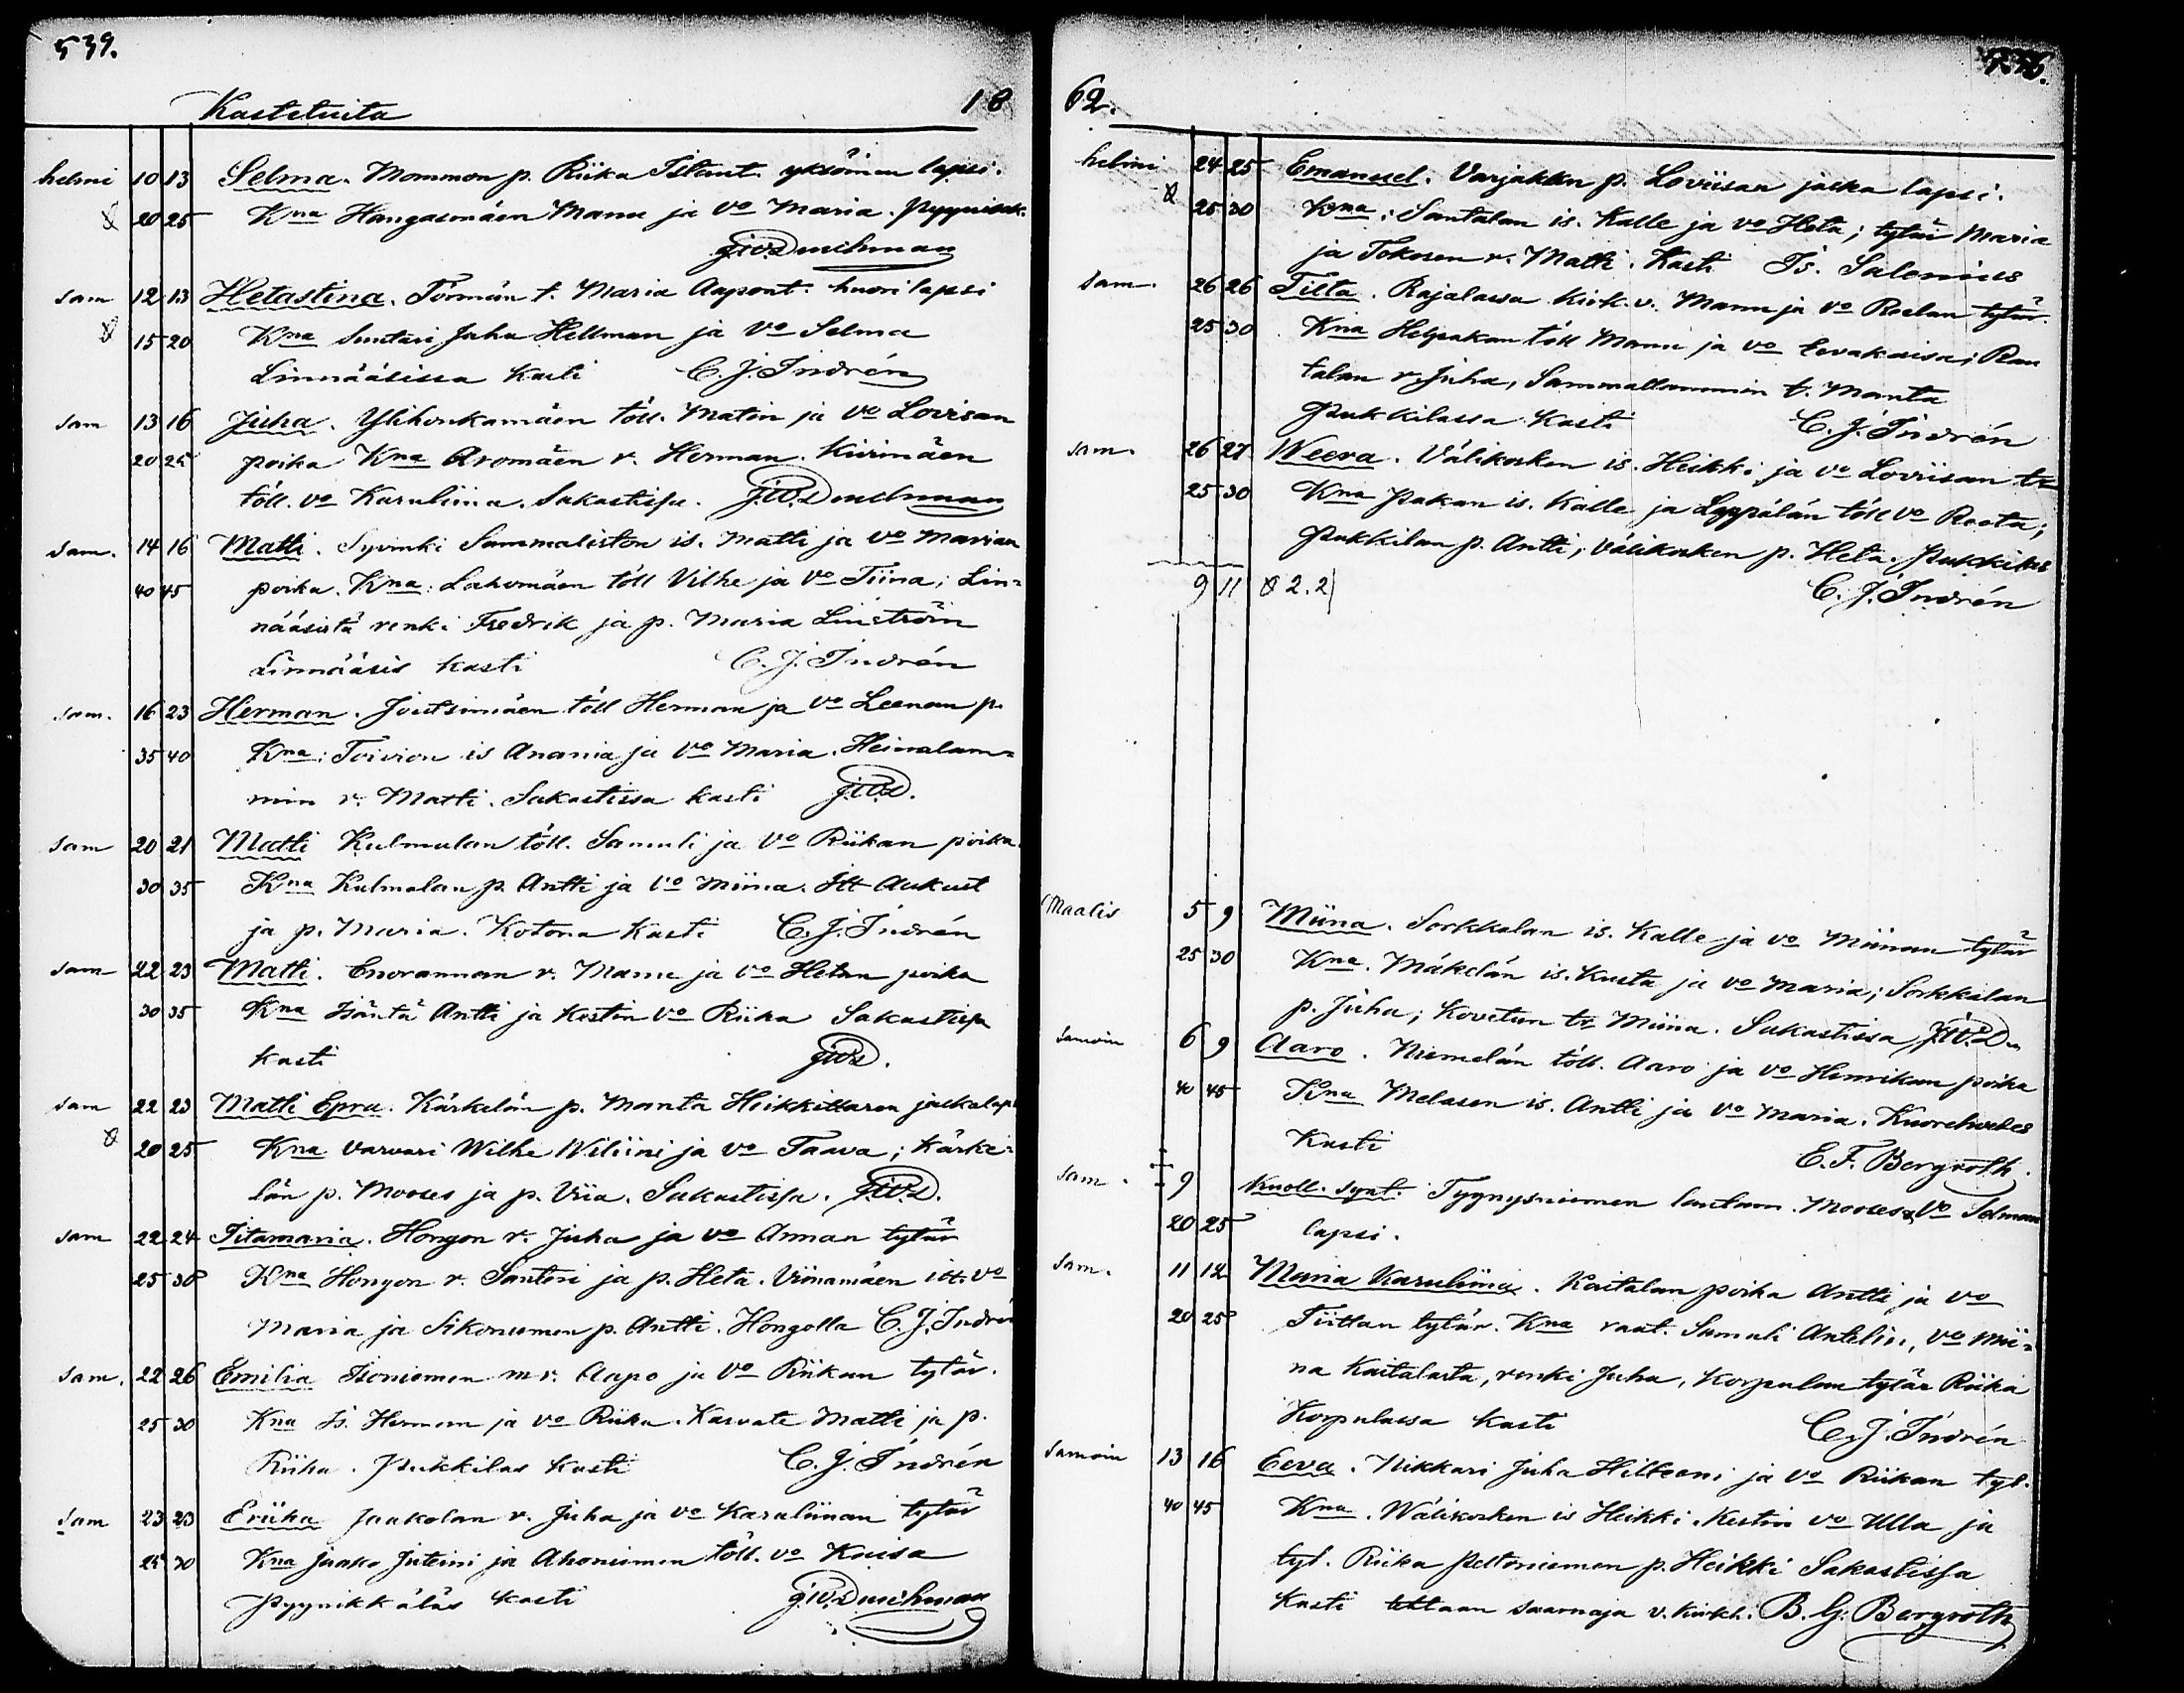 539.
Kastetuita 18
helmi 10 13 Selma. Mommon p. Riika Istant. yksöinen lapsi.
20 25 Kna Hangasmäen Manu ja vo Maria.
sam 12 13 Hetastina. Törmän t. Maria Aapont. huorilapsi
15 20 Kna Suntari Juha Hellman ja vo Selma
Linnääsissa kasti C. J. Indrén
sam 13 16 Juha. Ylihonkamäen töll. Matin ja vo Lovisan
20 25 poika Kna Aromäen r. Herman. Kiirimäen
töll. vo Karuliina. Sakastissa.
sam. 14 16 Matti. Syvinki Sammaliston is. Matti ja vo Marian
40 45 poika. Kna: Lahomäen töll Vilhe ja vo Tiina; Lin=
nääsistä renki Fredrik ja p. Maria Linström
Linnääsis kasti C. J. Indrén
sam. 16 23 Herman. Joutsimäen töll Herman ja vo Leenan p.
35 40 Kna: Toivion is Anania ja vo Maria. Heinalam=
min r. Matti. Sakastissa kasti
sam 20 21 Matti Kulmalan töll. Samuli ja vo Riikan poika.
30 35 Kna Kulmalan p. Antti ja vo Miina. Itt Aukust
ja p. Maria. Kotona kasti C. J. Indrén
sam 22 23 Matti. Enorannan r. Manu ja vo Hetan poika
30 35 Kna Isäntä Antti ja Kestin vo Riika Sakastissa
kasti
sam 22 23 Matti Epra. Kärkelän p. Manta Heikkittaren jaskalap
20 25 Kna varvari Wilhe Wiliini ja vo Taava; Kärke=
län p. Mooses ja p. Viia. Sakastissa.
sam 22 24 Titamaria. Hongon r. Juha ja vo Annan tytär
25 30 Kna Hongon r. Santeri ja p. Heta. Viinamäen itt. vo
Maria ja Sikoniemen p. Antti. Hongolla C. J. Indrén
sam. 22 26 Emilia Isoniemen mr. Aapo ja vo Riikan tytär.
25 30 Kna Is. Herman ja vo Riika. Kasvate Matti ja p.
Riika. Pukkilas kasti C. J. Indrén
sam 23 23 Eriika Jaakolan r. Juha ja vo Karuliinan tytär
25 30 Kna Jaako Juteini ja Ahoniemen töll. vo Kaisa
Pyynikkäläs kasti
62.
helmi 24 25 Emanuel. Varjakkan p. Loviisan jaska lapsi.
25 30 Kna: Santalan is. Kalle ja vo Heta; tytär Maria
ja Tokosen r. Matti. Kasti Is. Salenius
sam. 26 26 Tilta. Rajalassa kirk. v. Manu ja vo Reelan tytär
25 30 Kna Helpakan töll Manu ja vo Eevakaisa; Ran
talan r. Juha, Sammallammin t. Manta
Pukkilassa kasti C. J. Indrén
sam. 26 27 Weera. Välikosken is. Heikki ja vo Loviisan tr
25 30 Kna Pakan is. Kalle ja Leppälän töll vo Reeta;
Pukkilan p. Antti; Välikosken p. Heta. Pukkilas
9 11 2.2 C. J. Indrén
Maalis 5 9 Miina. Sorkkalan is. Kalle ja vo Miinan tytär
25 30 Kna. Mäkelän is. Kusta ja vo Maria; Sorkkalan
p. Juha; Kovetun tr Miina. Sakastissa
samoin 6 9 Aaro. Niemelän töll. Aaro ja vo Henrikan poika
40 45 Kna Melasen is. Antti ja vo Maria. Kuorehvedes
Kasti E. F. Bergroth.
sam. 9 Kuoll. synt. Tyynysniemen lautam. Mooses & vo Selman
20 25 lapsi.
sam. 11 12 Maria Karuliina. Kaitalan poika Antti ja vo
20 25 Tiittan tytär. Kna raat. Samuli Antelin, vo Mii=
na Kaitalasta, renki Juha, Korpulan tytär Riika
Korpulassa kasti C. J. Indrén
samoin 13 16 Eeva. Nikkari Juha Hilteeni ja vo Riikan tyt.
40 45 Kna. Wälikosken is Heikki. Kestin vo Ulla ja
tyt. Riika Peltoniemen p. Heikki Sakastissa
Kasti saarnaja v. kirkh. B. G. Bergroth